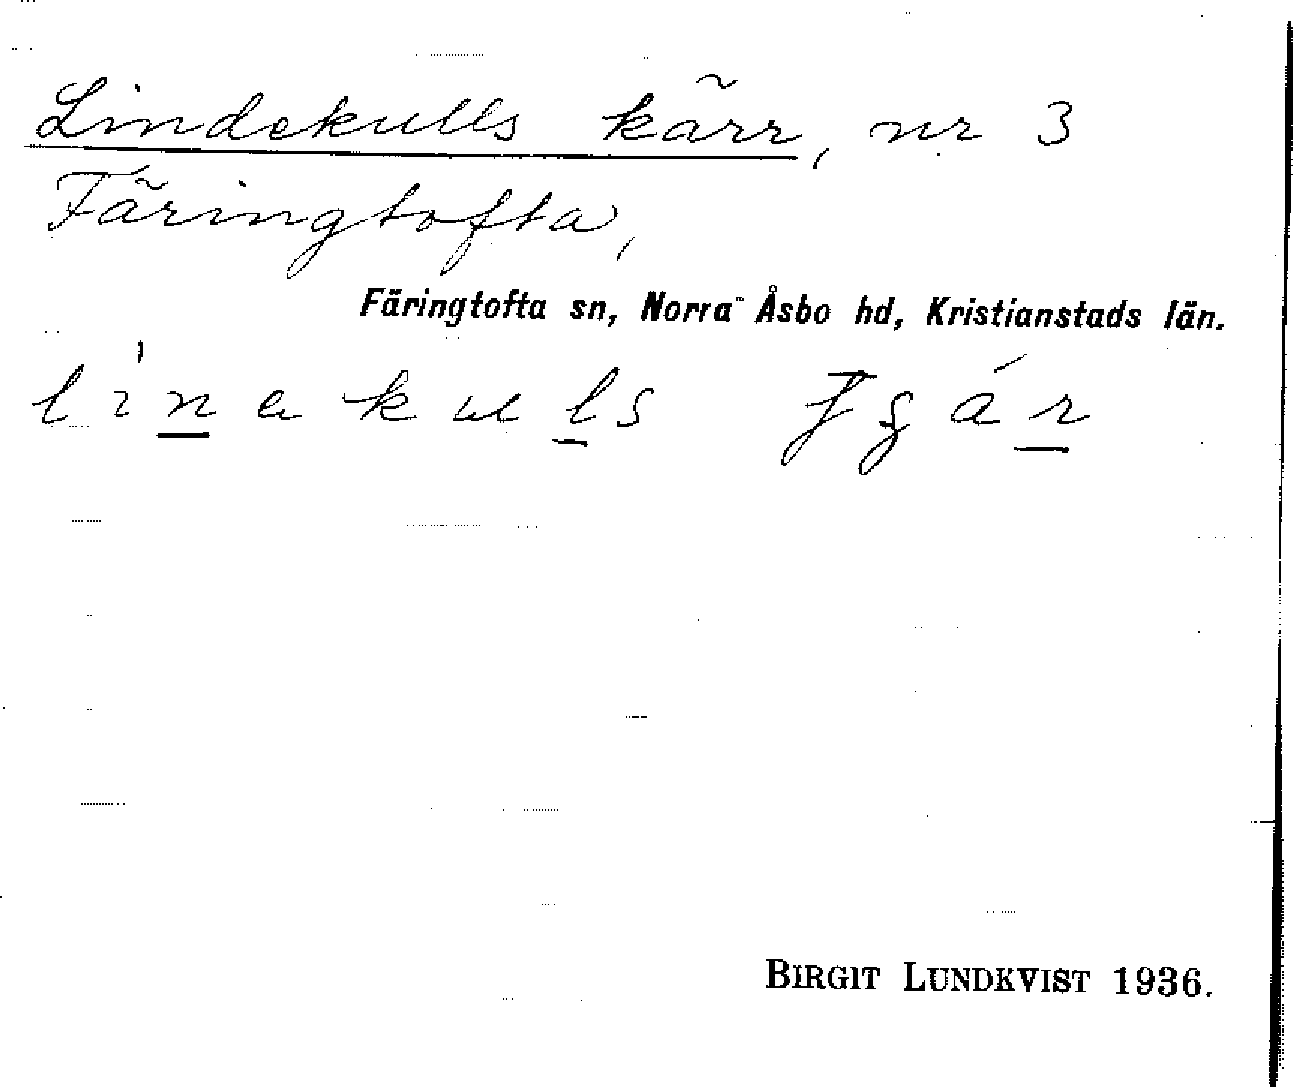 Lindekulls kärr, nr 3
Färingtofta,
Färingtofta sn, Norra Åsbo hd, Kristianstads län.
BIRGIT LUNDKVIST 1936.